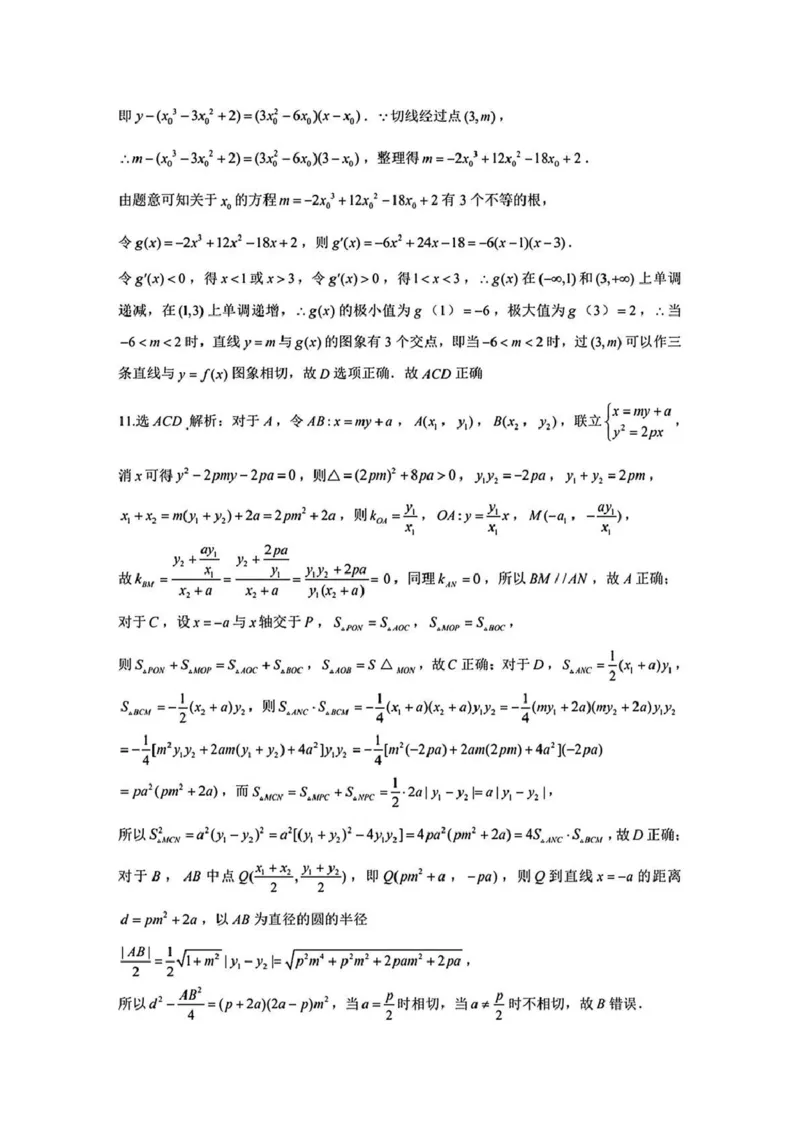 即 y−(x₀³−3x₀²+2)=(3x₀²−6x₀)(x−x₀)．∵切线经过点(3,m)，
∴m−(x₀³−3x₀²+2)=(3x₀²−6x₀)(3−x₀)，整理得m=−2x₀³+12x₀²−18x₀+2．
由题意可知关于 x₀ 的方程m=−2x₀³+12x₀²−18x₀+2有 3 个不等的根，
令g(x)=−2x³+12x²−18x+2，则g′(x)=−6x²+24x−18=−6(x−1)(x−3)．
令g′(x)<0，得x<1或x>3，令g′(x)>0，得1<x<3，∴g(x)在(−∞,1)和(3,+∞)上单调
递减，在(1,3)上单调递增，∴g(x)的极小值为g（1）=−6，极大值为g（3）=2，∴当
−6<m<2时，直线y=m与g(x)的图象有3个交点，即当−6<m<2时，过(3,m)可以作三
条直线与y=f(x)图象相切，故D选项正确．故ACD正确
11.选ACD .解析：对于A，令AB:x=my+a，A(x₁，y₁)，B(x₂，y₂)，联立{x=my+a y²=2px，
消x可得y²−2pmy−2pa=0，则△=(2pm)²+8pa>0，y₁y₂=−2pa，y₁+y₂=2pm，
x₁+x₂=m(y₁+y₂)+2a=2pm²+2a，则k_OA=y₁/x₁，OA:y=y₁/x₁ x，M(−a，−ay₁/x₁)，
故k_BM=(y₂+ay₁/x₁)/(x₂+a)=(y₂+2pa/y₁)/(x₂+a)=(y₁y₂+2pa)/(y₁(x₂+a))=0，同理k_AN=0，所以BM//AN，故A正确；
对于C，设x=−a与x轴交于P，S▵PON=S▵AOC，S▵MOP=S▵BOC，
则S▵PON+S▵MOP=S▵AOC+S▵BOC，S▵AOB=S△MON，故C正确；对于D，S▵ANC=1/2(x₁+a)y₁，
S▵BCM=−1/2(x₂+a)y₂，则S▵ANC·S▵BCM=−1/4(x₁+a)(x₂+a)y₁y₂=−1/4(my₁+2a)(my₂+2a)y₁y₂
=−1/4[m²y₁y₂+2am(y₁+y₂)+4a²]y₁y₂=−1/4[m²(−2pa)+2am(2pm)+4a²](−2pa)
=pa²(pm²+2a)，而S▵MCN=S▵MPC+S▵NPC=1/2·2a|y₁−y₂|=a|y₁−y₂|，
所以S²▵MCN=a²(y₁−y₂)²=a²[(y₁+y₂)²−4y₁y₂]=4pa²(pm²+2a)=4S▵ANC·S▵BCM，故D正确；
对于B，AB中点Q((x₁+x₂)/2,(y₁+y₂)/2)，即Q(pm²+a，−pa)，则Q到直线x=−a的距离
d=pm²+2a，以AB为直径的圆的半径
|AB|/2=1/2√(1+m²)|y₁−y₂|=√(p²m⁴+p²m²+2pam²+2pa)，
所以d²−AB²/4=(p+2a)(2a−p)m²，当a=p/2时相切，当a≠p/2时不相切，故B错误．